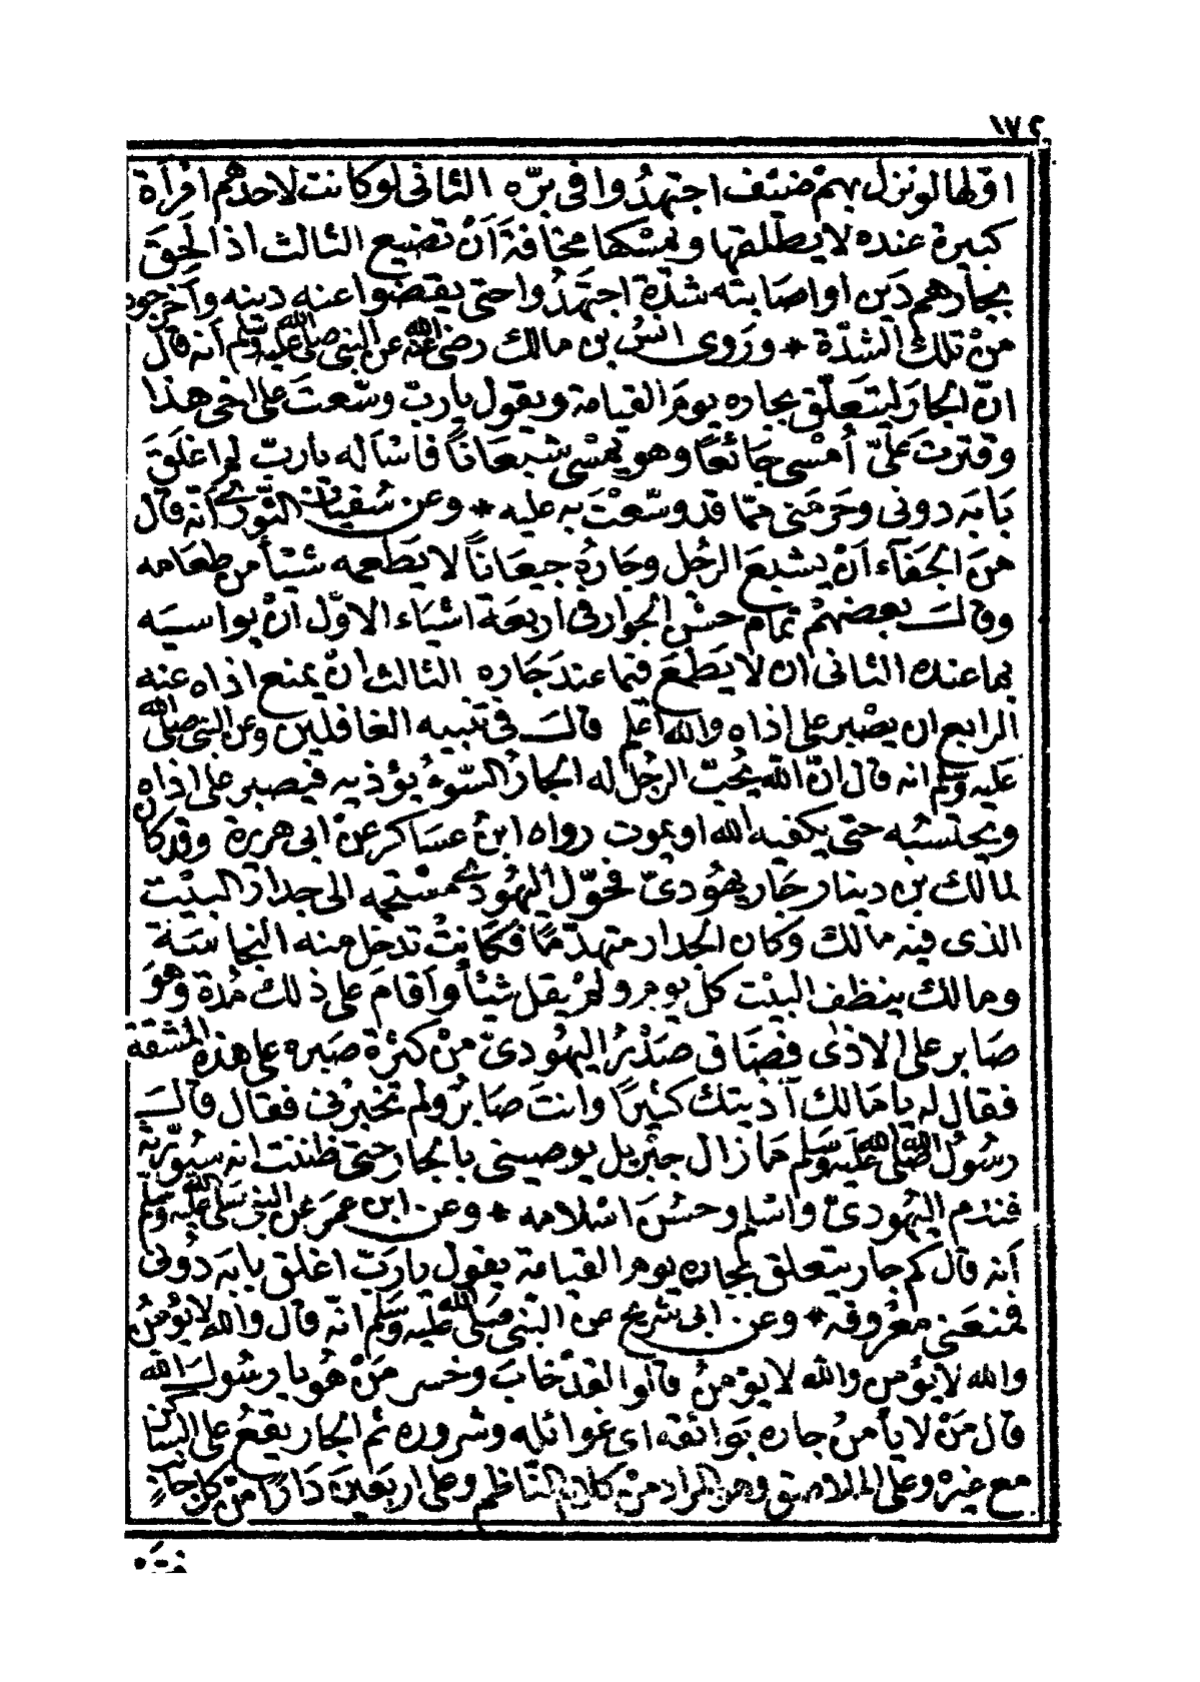 ١٧٢
اولها لو نزل بهم ضيف اجتهدوا فى برّه الثانى لو كانت لاحدهم امرأة
كبيرة عنده لا يطلقها ويمسكها مخافة أن تضيع الثالث اذا لحق
بجارهم دين او اصابته شدّة اجتهدوا حتى يقضوا عنه دينه وأخرجوه
من تلك الشدّة * وروى انس بن مالك رضى الله عنه عن النبى صلى الله عليه وسلم أنه قال
انّ الجار ليتعلّق بجاره يوم القيامة ويقول يا ربّ وسّعت على اخى هذا
وقترت علىّ أمسى جائعًا وهو يمسى شبعانًا فاسأله يا ربّ لم اغلق
بابه دونى وحرمنى ممّا قد وسّعت به عليه * وعن سفيان الثورى أنه قال
من الجفاء أن يشبع الرجل وجاره جيعانًا لا يطعمه شيئا من طعامه
وقال بعضهم تمام حسن الجوار فى اربعة اشياء الاوّل ان يواسيه
بما عنده الثانى ان لا يطمع فيما عند جاره الثالث ان يمنع اذاه عنه
الرابع ان يصبر على اذاه والله اعلم قال فى تنبيه الغافلين وعن النبى صلى الله
عليه وسلم انه قال انّ الله يحبّ الرجل له الجار السّوء يؤذيه فيصبر على اذاه
ويحتسبه حتى يكفيه الله او يموت رواه ابن عساكر عن ابى هريرة وقد كان
لمالك بن دينار جار يهودىّ فحوّل اليهودى مستحمه الى جدار البيت
الذى فيه مالك وكان الجدار متهدّمًا فكانت تدخل منه النجاسة
ومالك ينظف البيت كل يوم ولم يقل شيئًا وأقام على ذلك مدة وهو
صابر على الاذى فضاق صدر اليهودىّ من كثرة صبره على هذه المشقة
فقال له يا مالك آذيتك كثيرًا وانت صابر ولم تخبرنى فقال قال
رسول الله صلى الله عليه وسلم ما زال جبريل يوصينى بالجار حتى ظننت انه سيورّثه
فندم اليهودىّ واسلم وحسن اسلامه * وعن ابن عمر عن النبى صلى الله عليه وسلم
أنه قال كم جار يتعلق بجاره يوم القيامة يقول يا ربّ اغلق بابه دونى
فمنعنى معروفه * وعن ابى شريح عن النبى صلى الله عليه وسلم انّه قال والله لا يؤمن
والله لا يؤمن والله لا يؤمن قالوا لقد خاب وخسر من هو يا رسول الله
قال من لا يأمن جاره بوائقه اى غوائله وشروره ثم الجار يقع على الساكن
مع غيره وعلى الملاصق وهو المراد من كلام الناظم وعلى اربعين دارًا من كل جانب